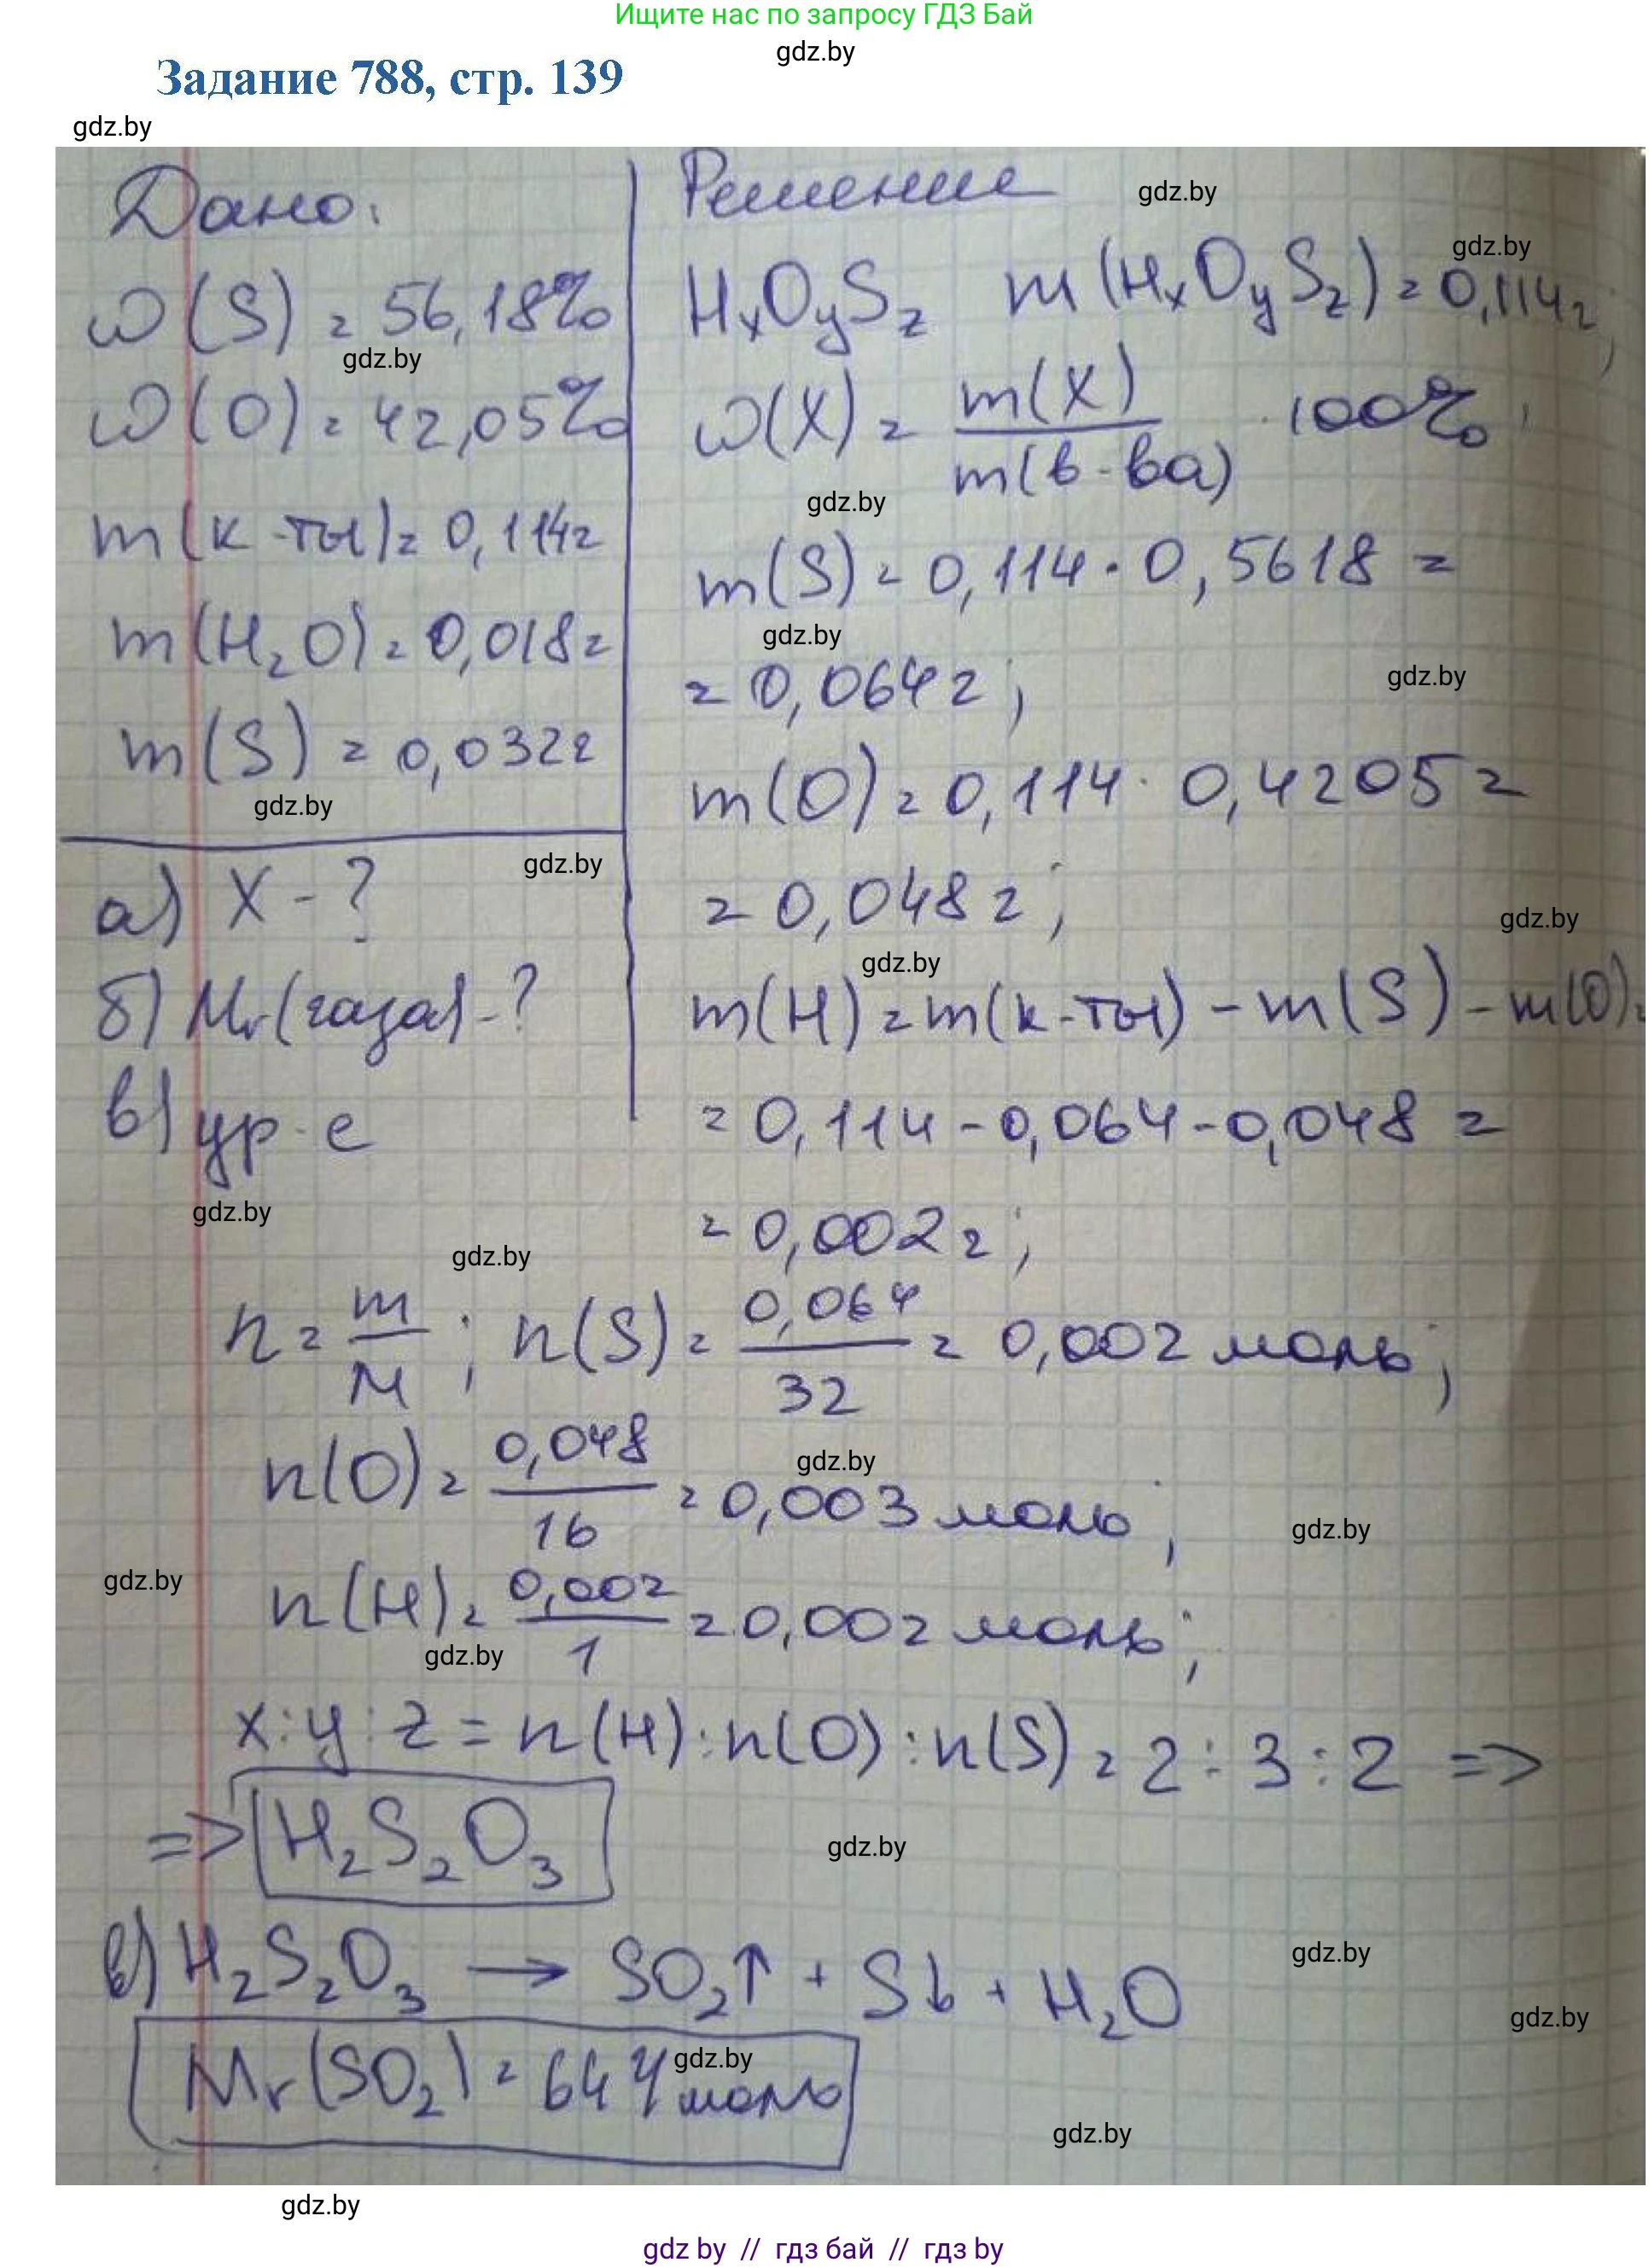 Ищите нас по запросу ГДЗ Бай
gdz.by
Задание 788, стр. 139
gdz.by
Дано:
ω(S) = 56,18%
gdz.by
ω(O) = 42,05%
m(к-ты) = 0,114г
m(H₂O) = 0,018г
m(S) = 0,032г
gdz.by
а) X - ?
gdz.by
б) Mr(газа) - ?
в) ур-е
gdz.by
Решение
gdz.by
gdz.by
HxOySz m(HxOySz) = 0,114г;
ω(X) = m(X)/m(в-ва) · 100%;
gdz.by
m(S) = 0,114 · 0,5618 =
gdz.by
= 0,064г;
gdz.by
m(O) = 0,114 · 0,4205 =
= 0,048г;
gdz.by
gdz.by
m(H) = m(к-ты) - m(S) - m(O) =
= 0,114 - 0,064 - 0,048 =
= 0,002г;
gdz.by
n = m/M; n(S) = 0,064/32 = 0,002 моль;
n(O) = 0,048/16 = 0,003 моль;
gdz.by
gdz.by
gdz.by
n(H) = 0,002/1 = 0,002 моль;
gdz.by
x : y : z = n(H) : n(O) : n(S) = 2 : 3 : 2 =>
=> H₂S₂O₃
gdz.by
в) H₂S₂O₃ → SO₂↑ + S↓ + H₂O
gdz.by
gdz.by
Mr(SO₂) = 64 г/моль
gdz.by
gdz.by
gdz.by
gdz by // гдз бай // гдз by